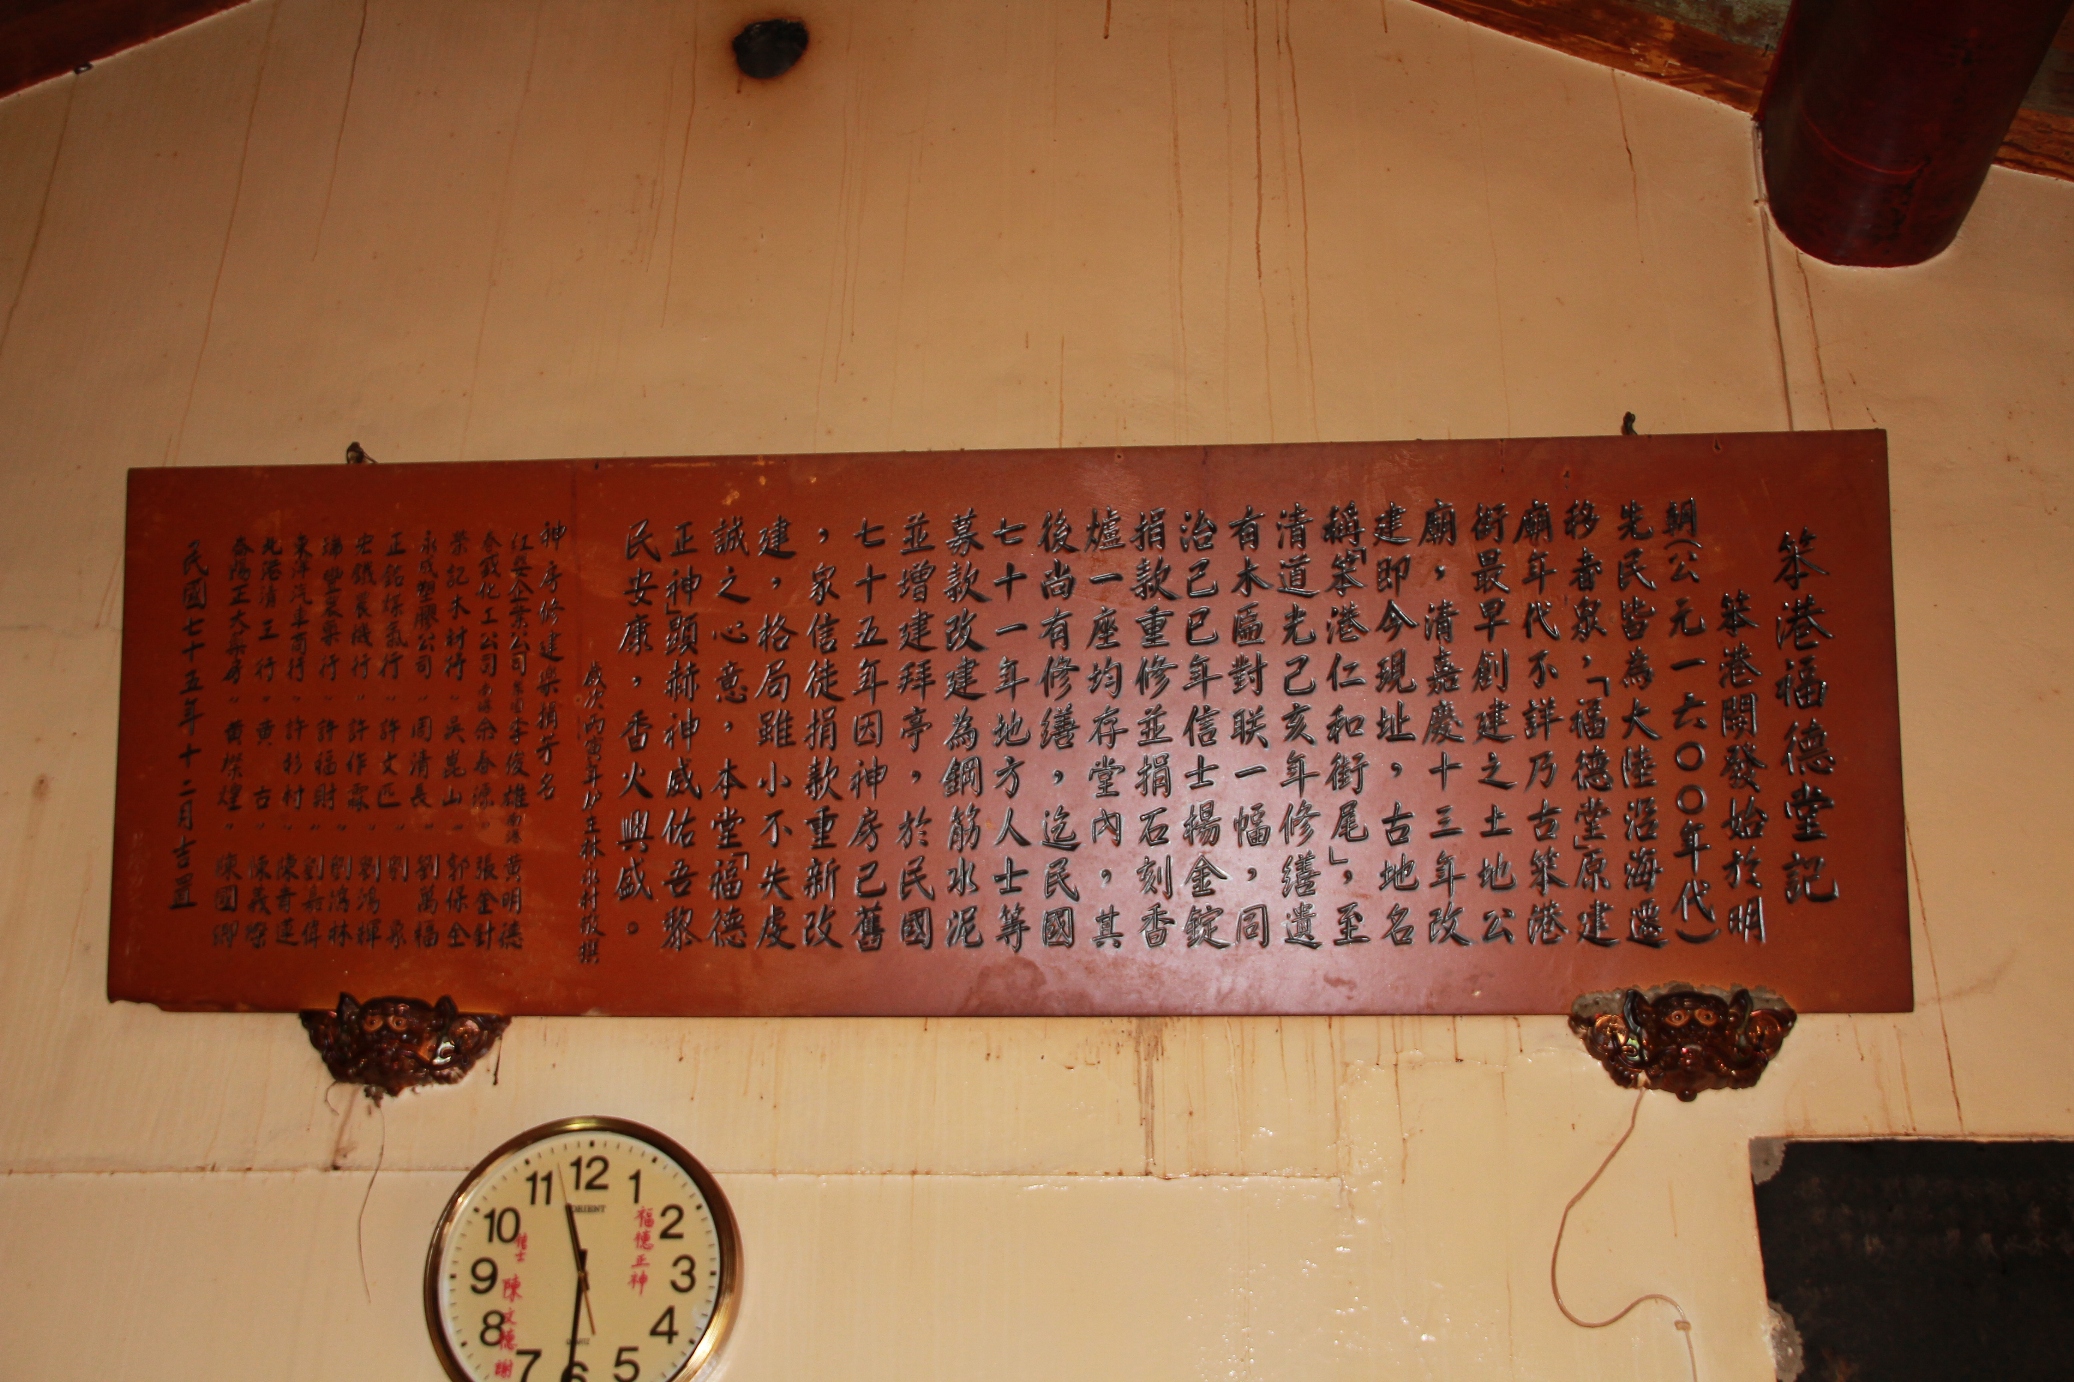 笨港福德堂記
笨港開發始於明
朝(公元一六〇〇年代)
先民皆為大陸沿海遷
移者眾,「福德堂」原建
廟年代不詳乃古笨港
街最早創建之土地公
廟,清嘉慶十三年改
建即今現址,古地名
稱「笨港仁和街尾」,至
清道光己亥年修繕遺
有木區對联一幅,同
治己巳年信士楊金錠
捐款重修並捐石刻香
爐一座均存堂內,其
後尚有修繕,迄民國
七十一年地方人士等
募款改建為鋼筋水泥
並增建拜亭,於民國
七十五年因神房已舊
,家信徒捐款重新改
建,格局雖小不失虔
誠之心意,本堂「福德
正神」顯赫神威佑吾黎
民安康,香火興盛。
歲次丙寅年 王林水村敬撰
神房修建樂捐芳名
企業公司 李俊雄 黃明德
化工公司 余春源〃張金針
榮記木材行〃吳崑山〃郭保全
永成塑膠公司〃周清長〃劉萬福
正銘煤氣行〃許文匹〃劉
宏鐵農機行〃許作霖〃劉鴻輝
瑞豐藥行〃許福財〃劉
東洋汽車商行〃許 村〃劉嘉偉
北港清王行〃黃 古〃陳奇蓮
春陽正大藥房〃黃榮煌〃陳義
陳國卿
民國七十五年十二月吉置
12
1
2
3
4
5
6
7
8
9
10
11
ORIENT
福德正神
信士 陳文德 謝